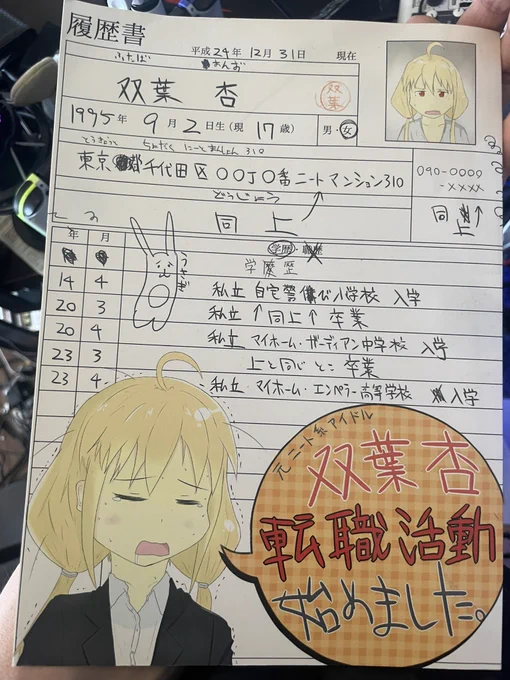 履歴書
平成24年 12月 31日 現在
ふたば あんず
双葉 杏
双葉
1995年 9月 2日生(現 17歳) 男・女
とうきょうと ちよだく にーとまんしょん 310
東京都千代田区〇〇J〇番ニートマンション310
090-0000
-××××
どうじょう
同上
同上↑
年 月
学歴・職歴
学歴
うさぎ
14 4 私立 自宅警備小学校 入学
20 3 私立 ↑同上↑ 卒業
20 4 私立 マイホーム・ガーディアン中学校 入学
23 3 上と同じとこ 卒業
23 4 私立 マイホーム・エンペラー高等学校 入学
元ニート系アイドル
双葉 杏
転職活動
始めました。